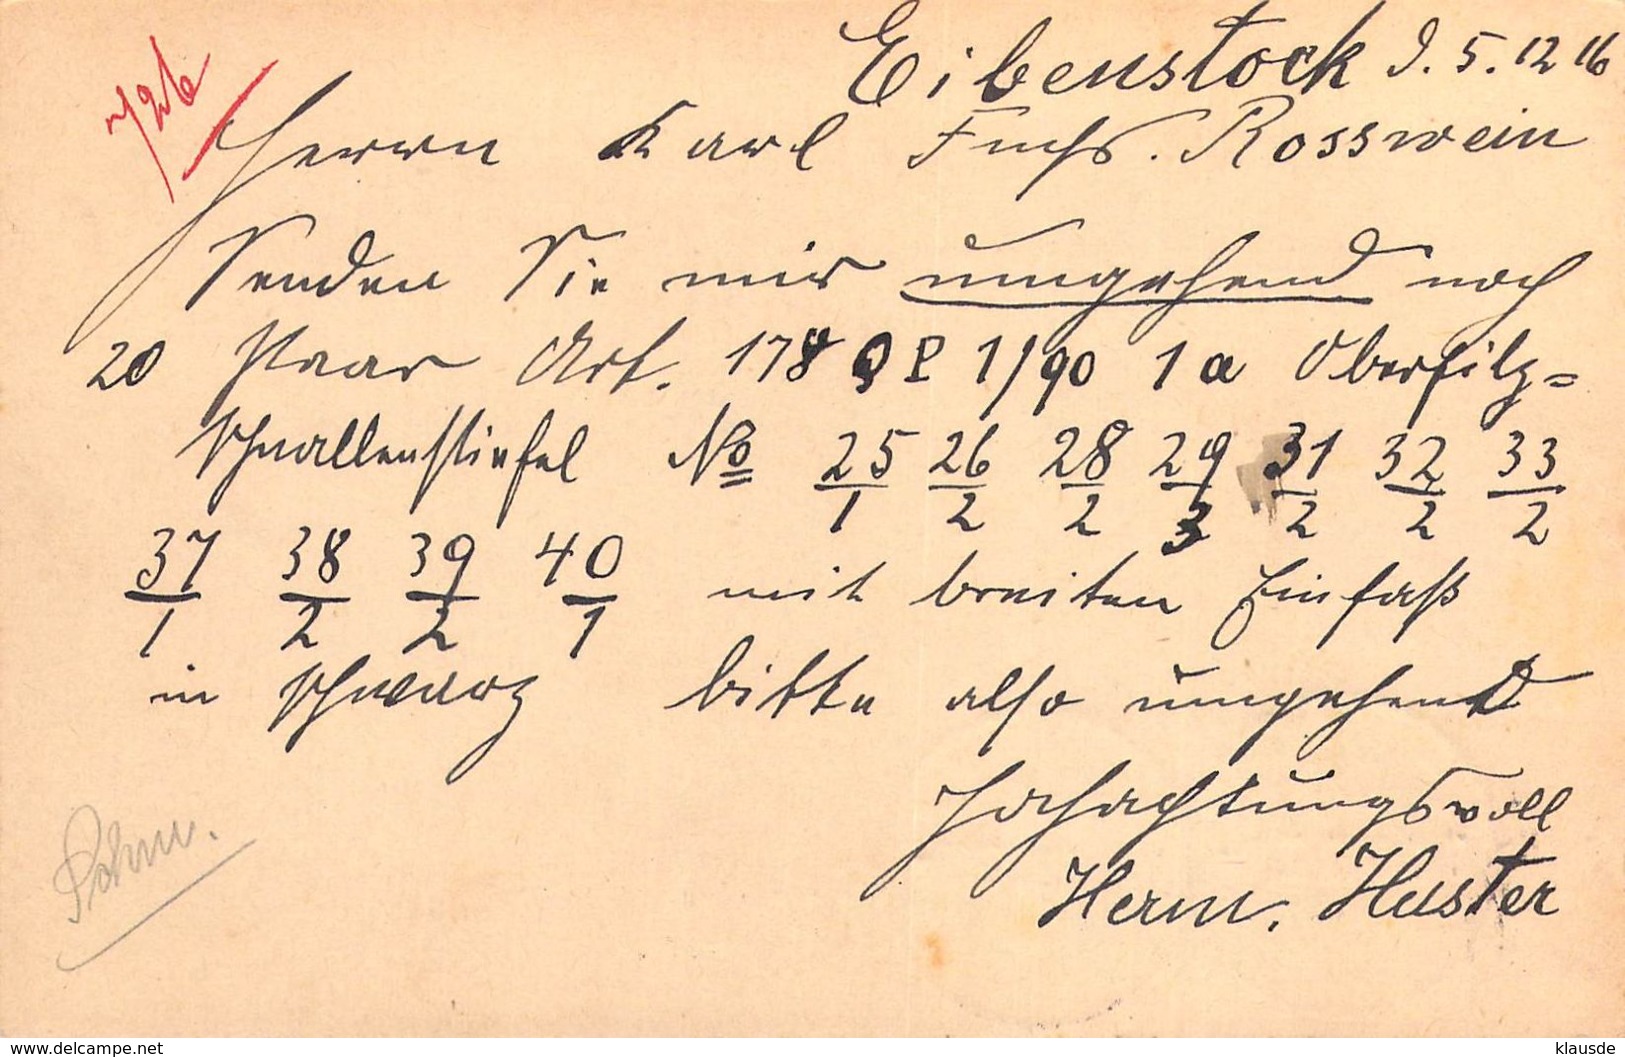 Eibenstock d. 5. 12 16
Herrn Karl Fuchs. Rosswein
Senden Sie mir umgehend noch
20 Paar Art. 178 P 1/90 1a Oberfilz=
schnallenstiefel No 25/1 26/2 28/2 29/3 31/2 32/2 33/2
37/1 38/2 39/2 40/1 mit breiten Einfaß
in schwarz bitte also umgehend
Hochachtungsvoll
Herm. Huster
www.delcampe.net
klausde